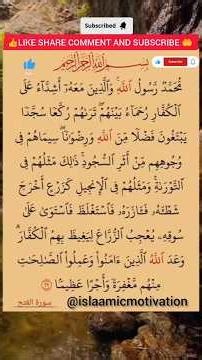 Subscribed
👍LIKE SHARE COMMENT AND SUBSCRIBE 🤲
بِسْمِ اللَّهِ الرَّحْمَٰنِ الرَّحِيمِ
مُّحَمَّدٌ رَّسُولُ اللَّهِ ۚ وَالَّذِينَ مَعَهُ أَشِدَّاءُ عَلَى
الْكُفَّارِ رُحَمَاءُ بَيْنَهُمْ ۖ تَرَاهُمْ رُكَّعًا سُجَّدًا
يَبْتَغُونَ فَضْلًا مِّنَ اللَّهِ وَرِضْوَانًا ۖ سِيمَاهُمْ فِي
وُجُوهِهِم مِّنْ أَثَرِ السُّجُودِ ۚ ذَٰلِكَ مَثَلُهُمْ فِي
التَّوْرَاةِ ۚ وَمَثَلُهُمْ فِي الْإِنجِيلِ كَزَرْعٍ أَخْرَجَ
شَطْأَهُ فَآزَرَهُ فَاسْتَغْلَظَ فَاسْتَوَىٰ عَلَىٰ
سُوقِهِ يُعْجِبُ الزُّرَّاعَ لِيَغِيظَ بِهِمُ الْكُفَّارَ ۗ
وَعَدَ اللَّهُ الَّذِينَ آمَنُوا وَعَمِلُوا الصَّالِحَاتِ
مِنْهُم مَّغْفِرَةً وَأَجْرًا عَظِيمًا ﴿٢٩﴾
سورة الفتح
@islaamicmotivation